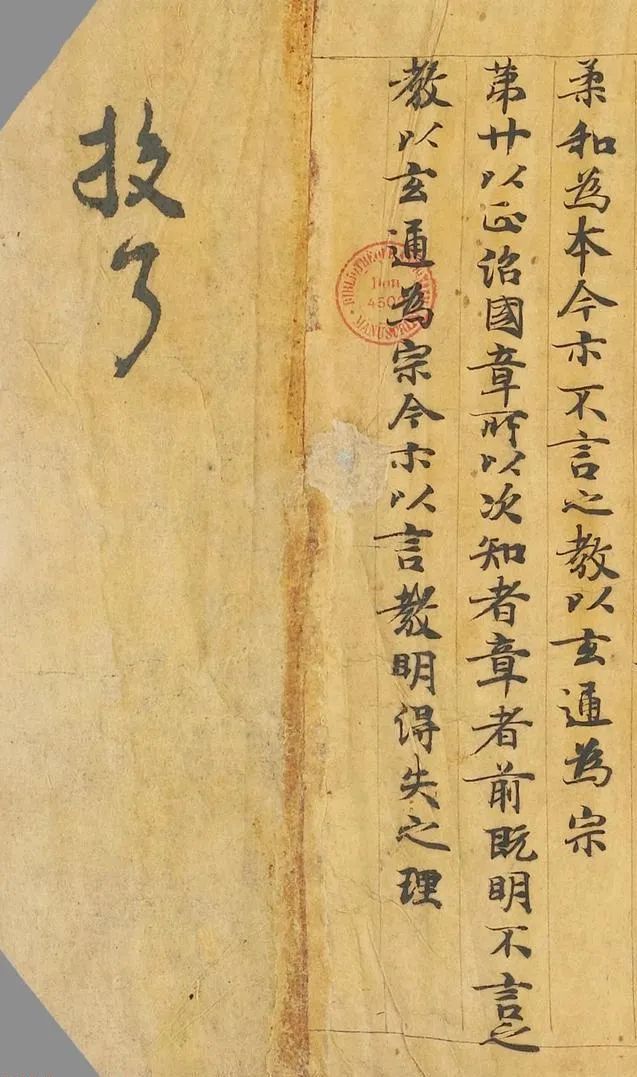 柔和為本今亦不言之教以玄通為宗
第廿以正治國章所以次知者章者前既明不言之
教以玄通為宗今亦以言教明得失之理
BIBLIOTHÈQUE
Don
450
MANUSCRITS